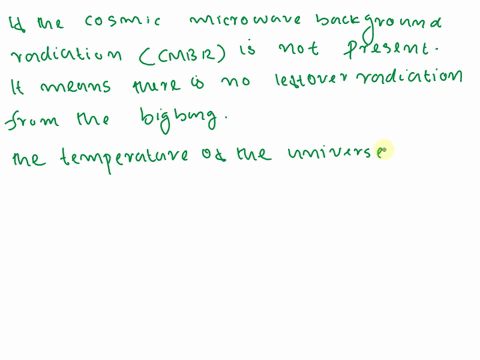 If the cosmic microwave background
radiation (CMBR) is not present.
It means there is no leftover radiation
from the bigbang.
the temperature of the universe